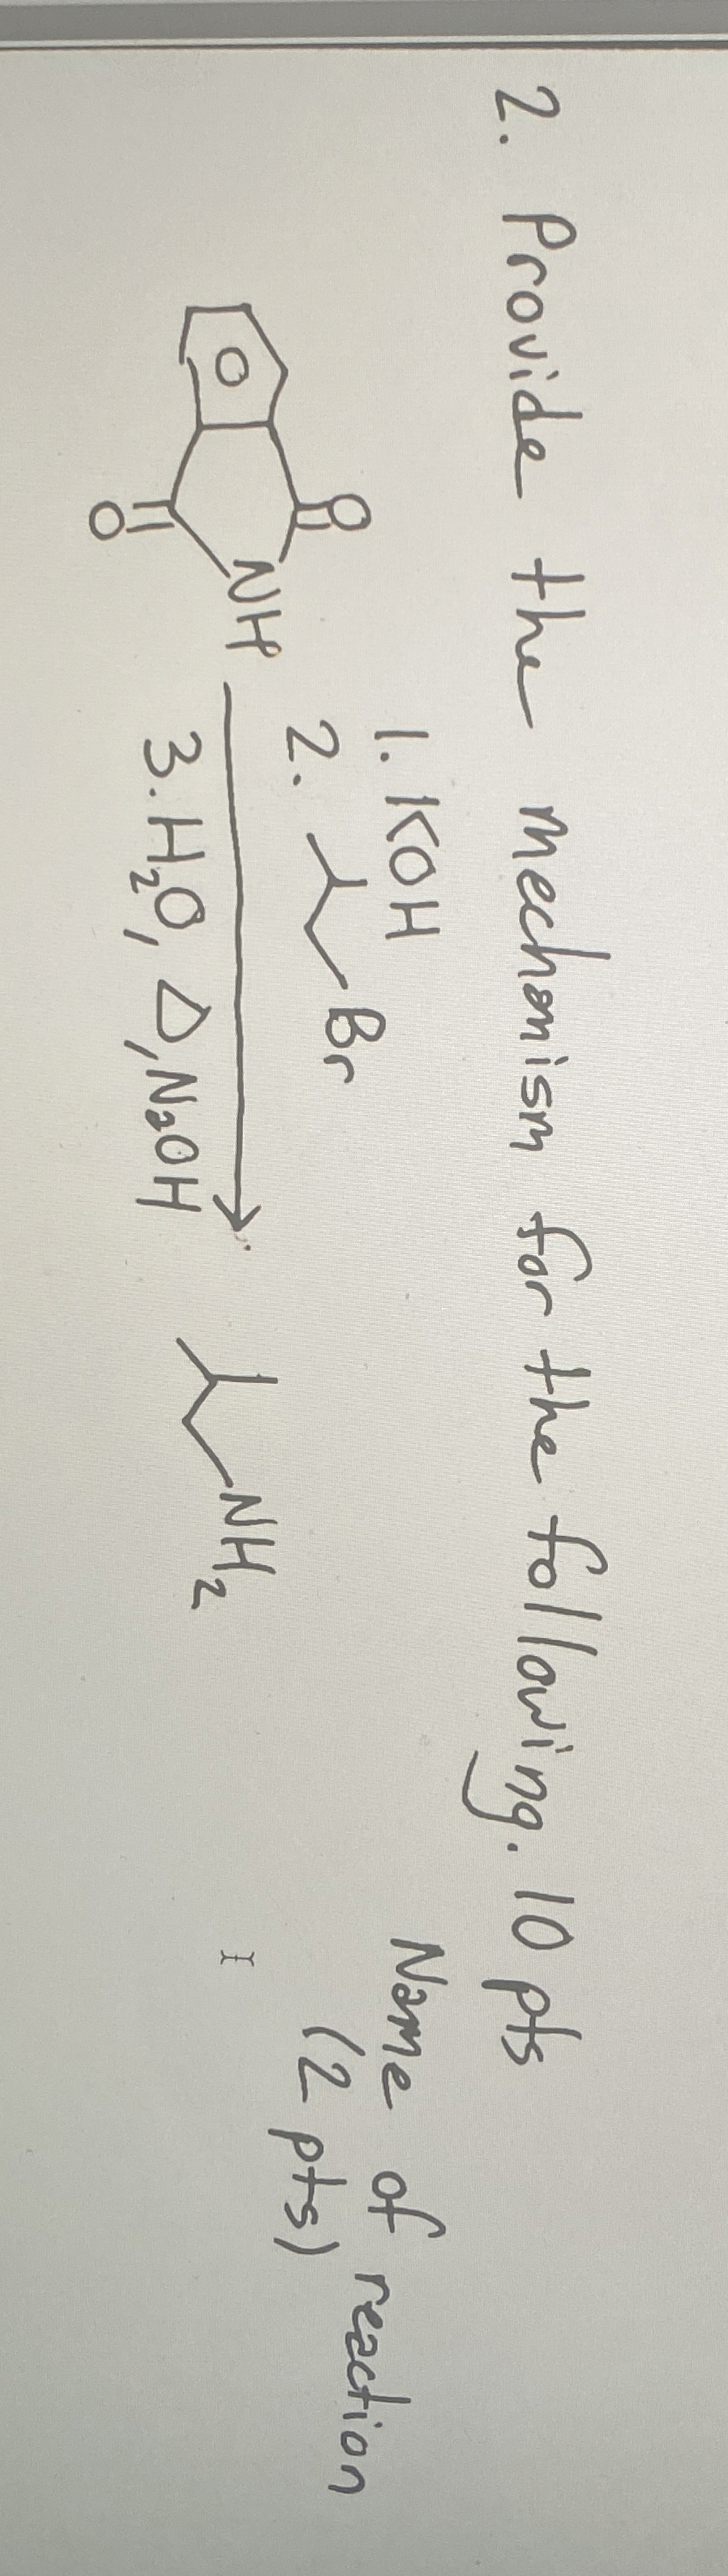 2. Provide the mechanism for the following. 10 pts
Name of reaction
(2 pts)
1. KOH
2. Br
O
NH
O
3. H₂O, Δ, NaOH
NH₂